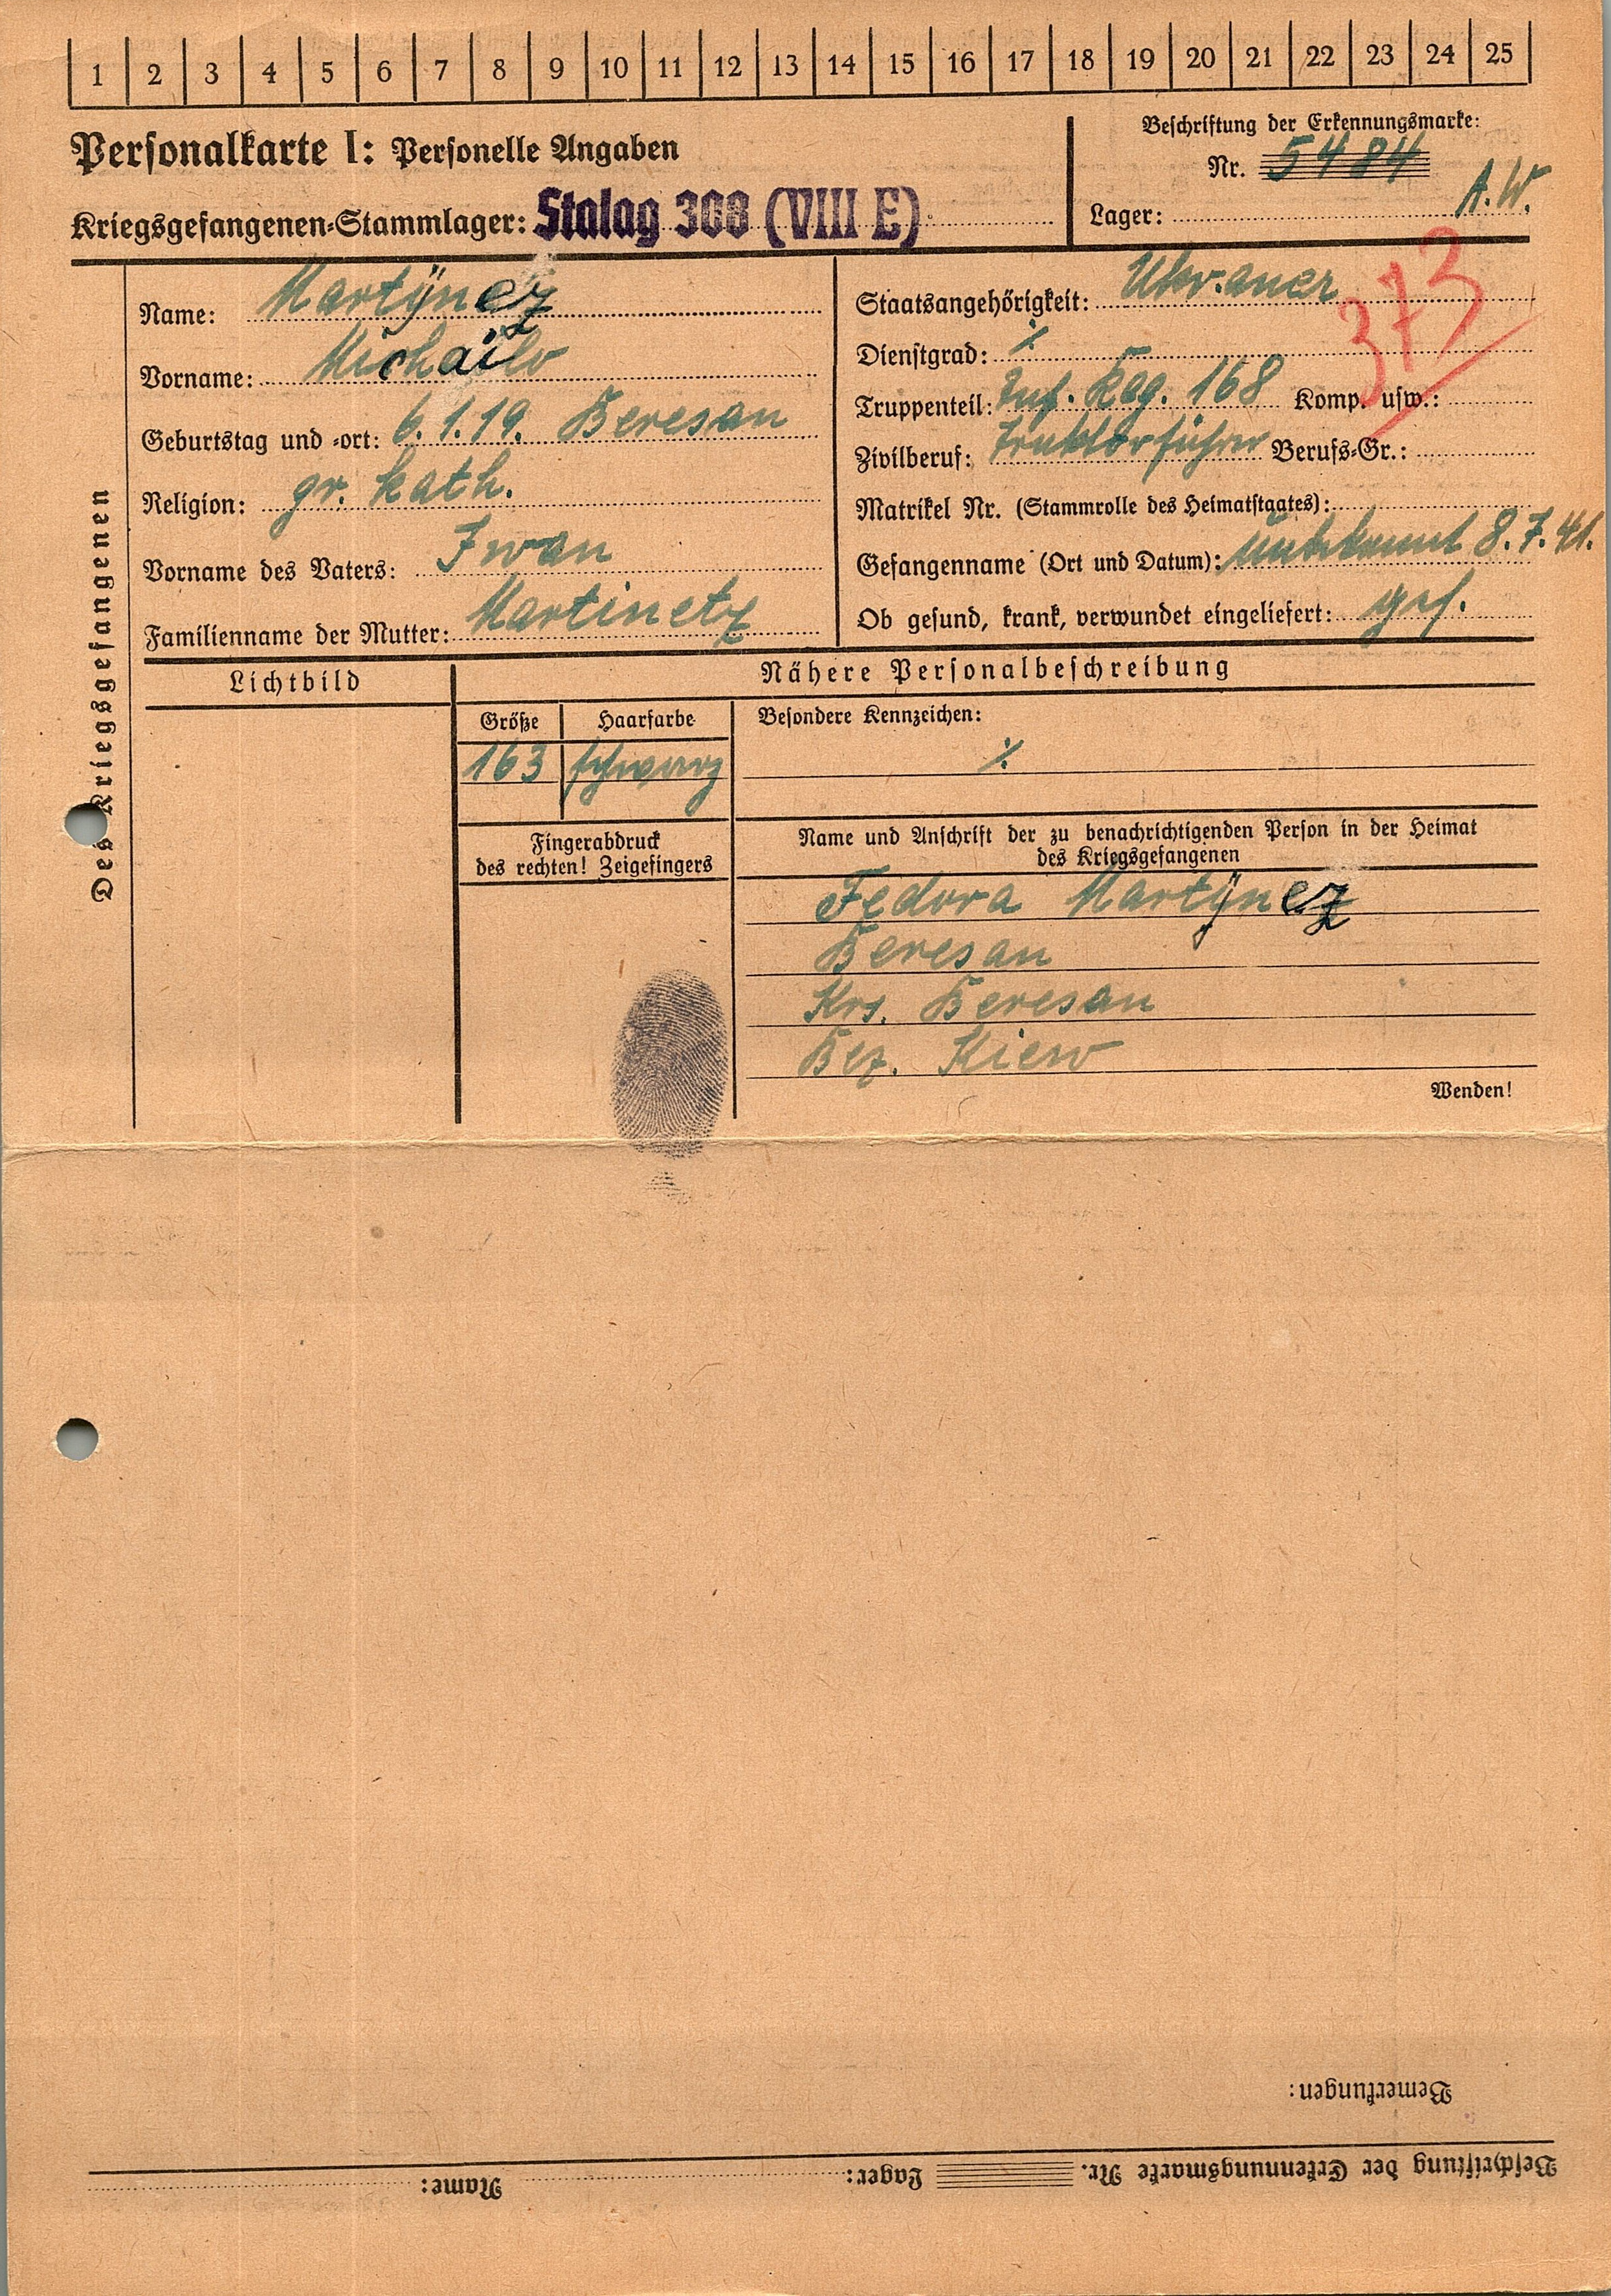 1 2 3 4 5 6 7 8 9 10 11 12 13 14 15 16 17 18 19 20 21 22 23 24 25
Personalkarte I: Personelle Angaben
Kriegsgefangenen-Stammlager: Stalag 308 (VIII E)
Beschriftung der Erkennungsmarke:
Nr. 5484
Lager: A.W.
373
Des Kriegsgefangenen
Name: Martÿnez
Vorname: Michailo
Geburtstag und -ort: 6.1.19. Beresan
Religion: gr. kath.
Vorname des Vaters: Iwan
Familienname der Mutter: Martinetz
Staatsangehörigkeit: Ukr.aner
Dienstgrad: ⁒
Truppenteil: Inf. Reg. 168 Komp. usw.:
Zivilberuf: Traktorführer Berufs-Gr.:
Matrikel Nr. (Stammrolle des Heimatstaates):
Gefangenname (Ort und Datum): Unbekannt 8.7.41.
Ob gesund, krank, verwundet eingeliefert: ges.
Lichtbild
Nähere Personalbeschreibung
Größe Haarfarbe Besondere Kennzeichen:
163 schwarz ⁒
Fingerabdruck
des rechten! Zeigefingers
Name und Anschrift der zu benachrichtigenden Person in der Heimat
des Kriegsgefangenen
Fedora Martÿnez
Beresan
Krs. Beresan
Bez. Kiew
Wenden!
Bemerkungen:
Beschriftung der Erkennungsmarke Nr. Lager: Name: